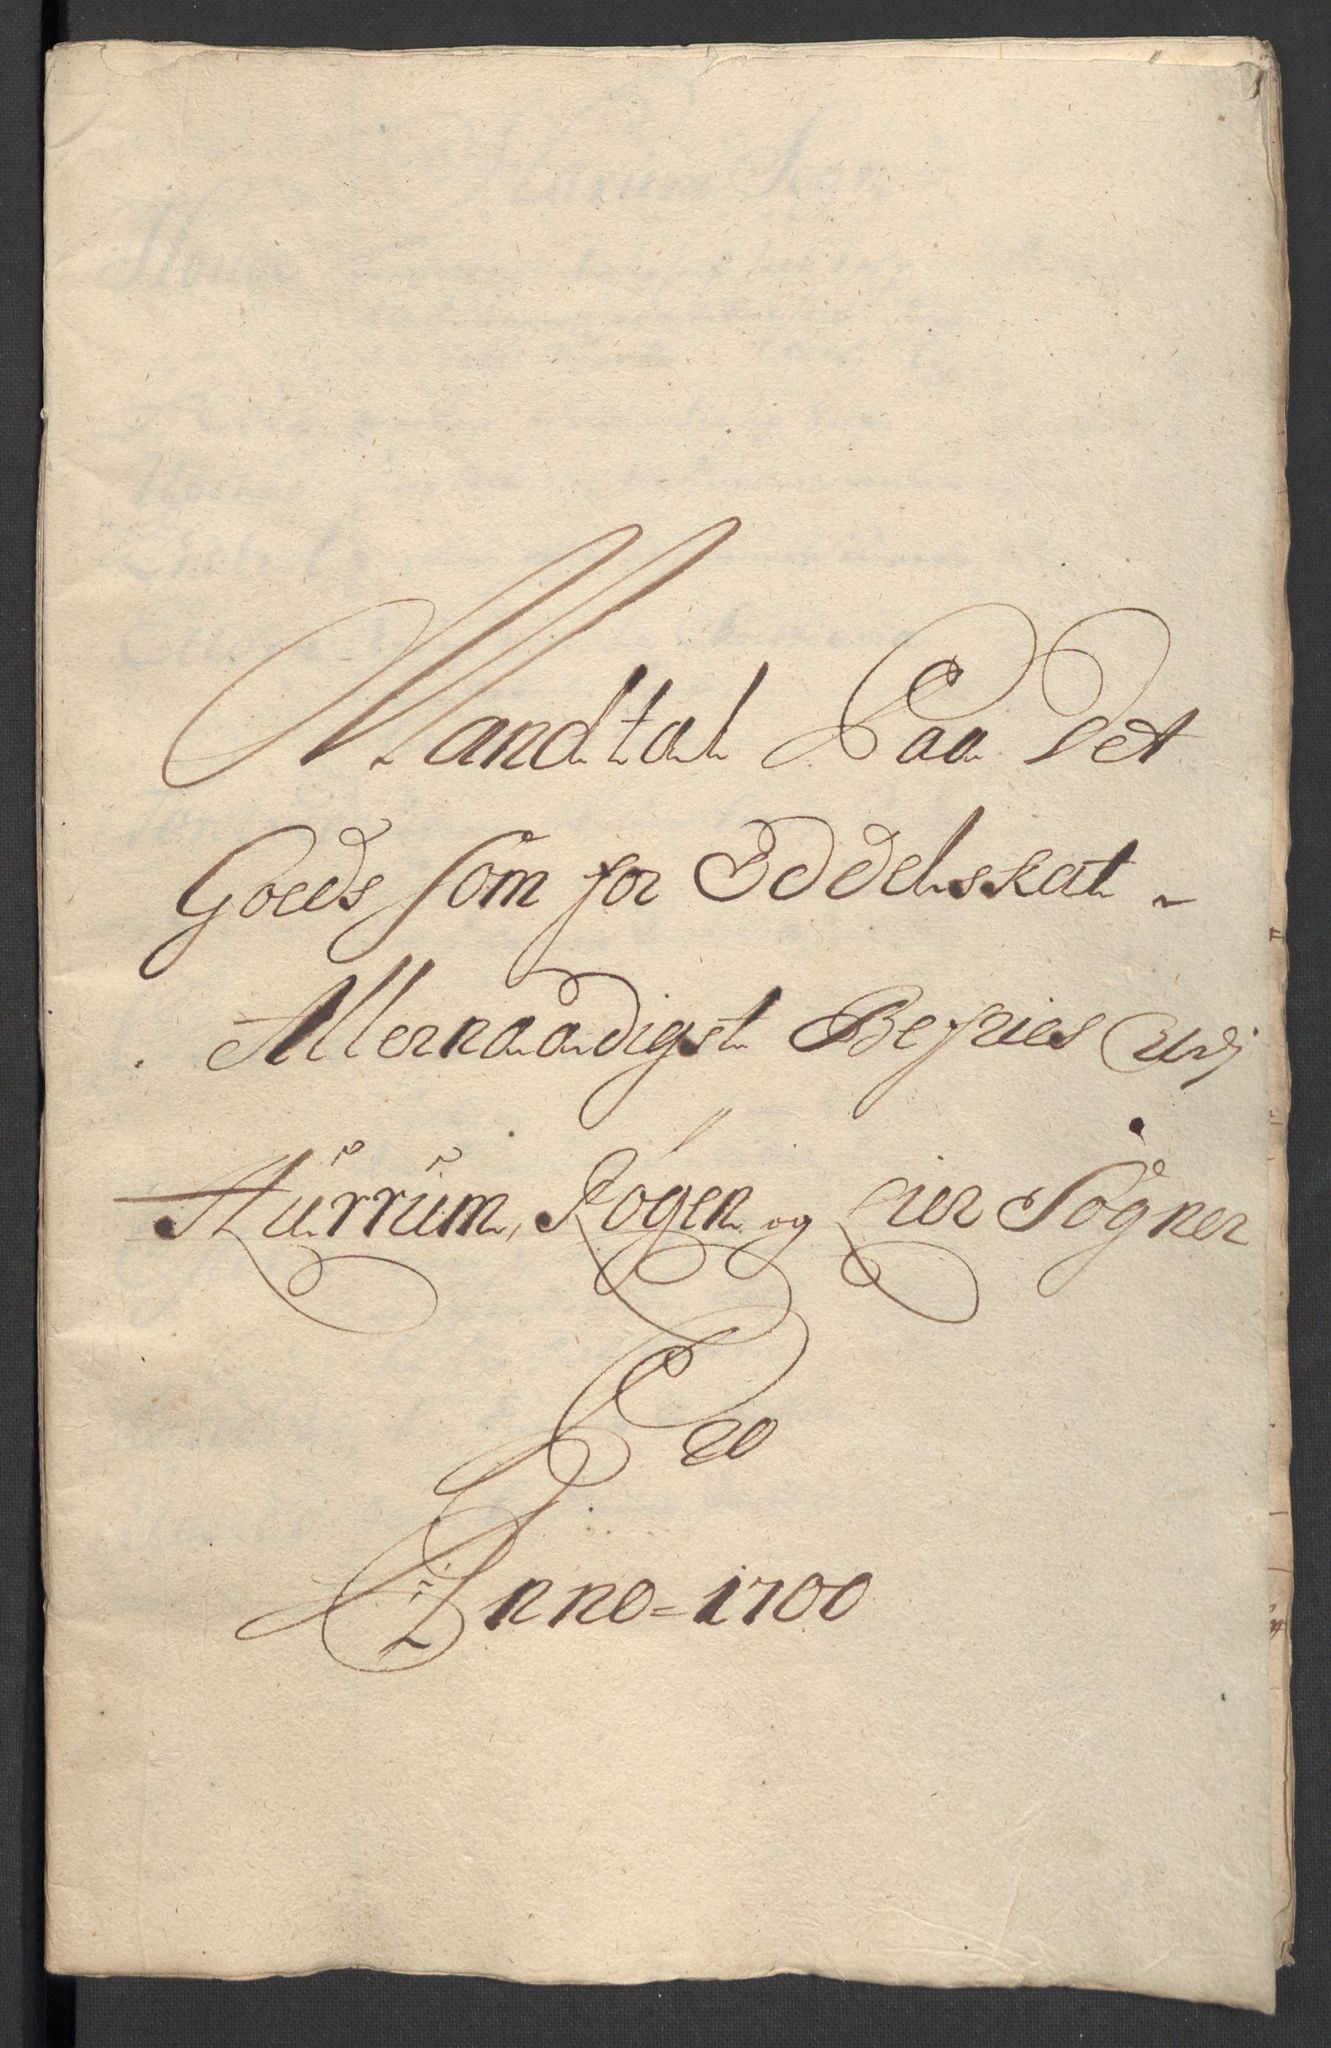 Mandtal Paa det
Goeds som for Oddelskat
Allernaadigst Befries Udj
Hurrum, Rögen og Lier Sogner
Pro
Anno = 1700